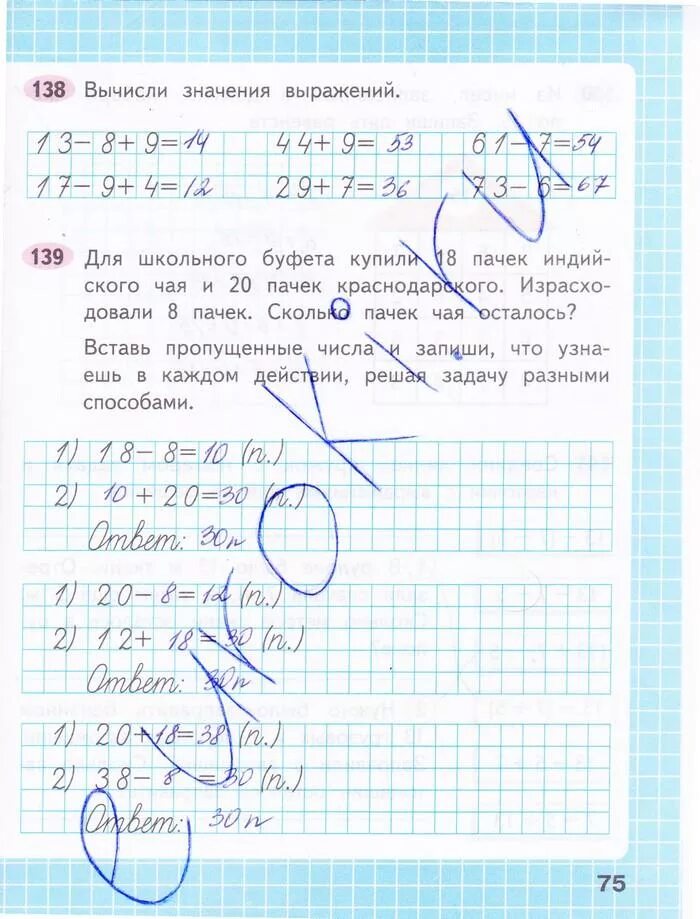 138 Вычисли значения выражений.
13-8+9=14 44+9=53 61-7=54
17-9+4=12 29+7=36 73-6=67
139 Для школьного буфета купили 18 пачек индий-
ского чая и 20 пачек краснодарского. Израсхо-
довали 8 пачек. Сколько пачек чая осталось?
Вставь пропущенные числа и запиши, что узна-
ешь в каждом действии, решая задачу разными
способами.
1) 18-8=10 (п.)
2) 10+20=30 (п.)
Ответ: 30п
1) 20-8=12 (п.)
2) 12+18=30 (п.)
Ответ: 30п
1) 20+18=38 (п.)
2) 38-8=30 (п.)
Ответ: 30п
75